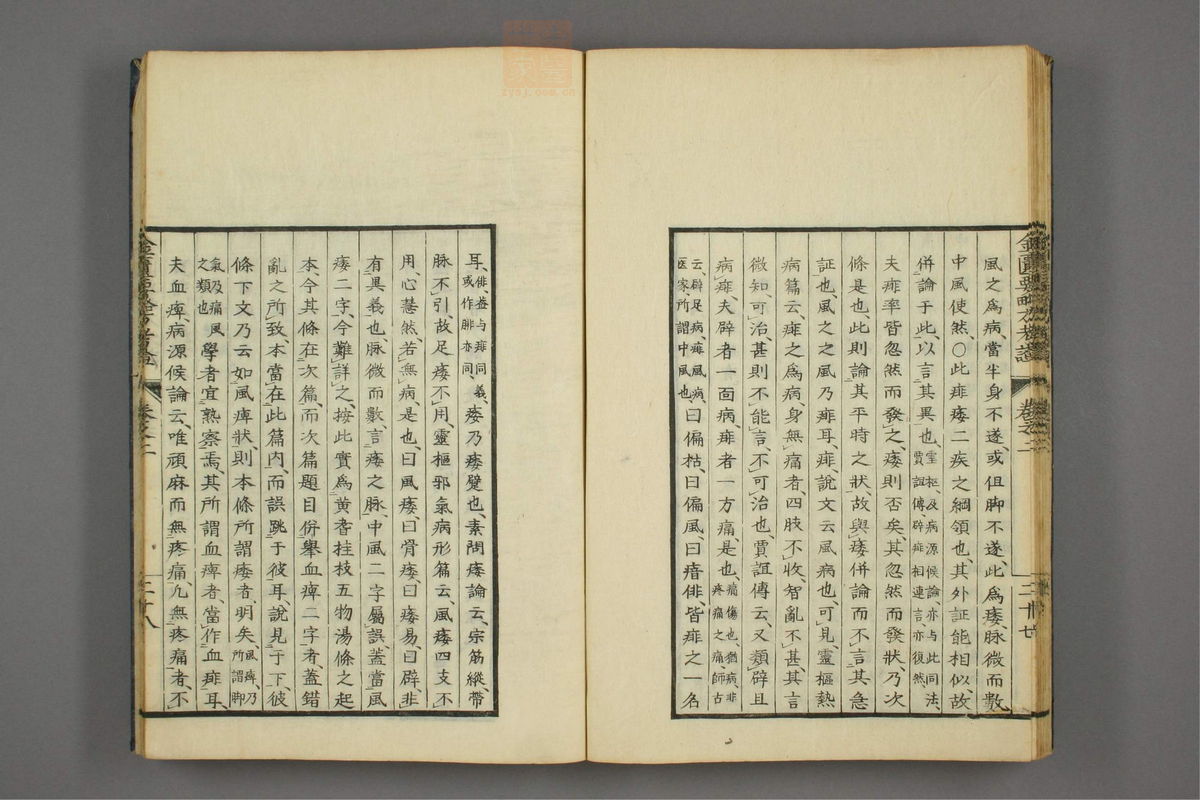 風之爲病當半身不遂或但脚不遂此爲痿脉微而數
中風使然○此痱痿二疾之綱領也其外証能相似故
併論于此以言其異也霊枢及病源候論亦与此同法
賈誼傳辟痱相連言亦復然
夫痱率皆忽然而發之痿則否矣其忽然而發狀乃次
條是也此則論其平時之狀故與痿併論而不言其急
証也風之之風乃痱耳痱說文云風病也可見靈樞熱
病篇云痱之爲病身無痛者四肢不收智亂不甚其言
微知可治甚則不能言不可治也賈誼傳云又類辟且
病痱夫辟者一面病痱者一方痛是也痛傷也猶病非
疼痛之痛師古
云辟足病痱風病
医家所謂中風也曰偏枯曰偏風曰瘖俳皆痱之一名
耳俳蓋与痱同義
或作腓亦同痿乃痿躄也素問痿論云宗筋縱帶
脉不引故足痿不用靈樞邪氣病形篇云風痿四支不
用心慧然若無病是也曰風痿曰骨痿曰痿易曰辟非
有異義也脉微而數言痿之脉中風二字屬誤蓋當風
痿二字今難詳之按此實爲黄耆桂枝五物湯條之起
本今其條在次篇而次篇題目併舉血痺二字者蓋錯
亂之所致本當在此篇内而誤跳于彼耳說見于下彼
條下文乃云如風痺狀則本條所謂痿者明矣風痺乃
所謂脚
氣及痛風
之類也學者宜熟察焉其所謂血痺者當作血痱耳
夫血痺病源候論云唯頑麻而無疼痛凢無疼痛者不
卷之二
三十七
卷之二
三十八
zysj.com.cn